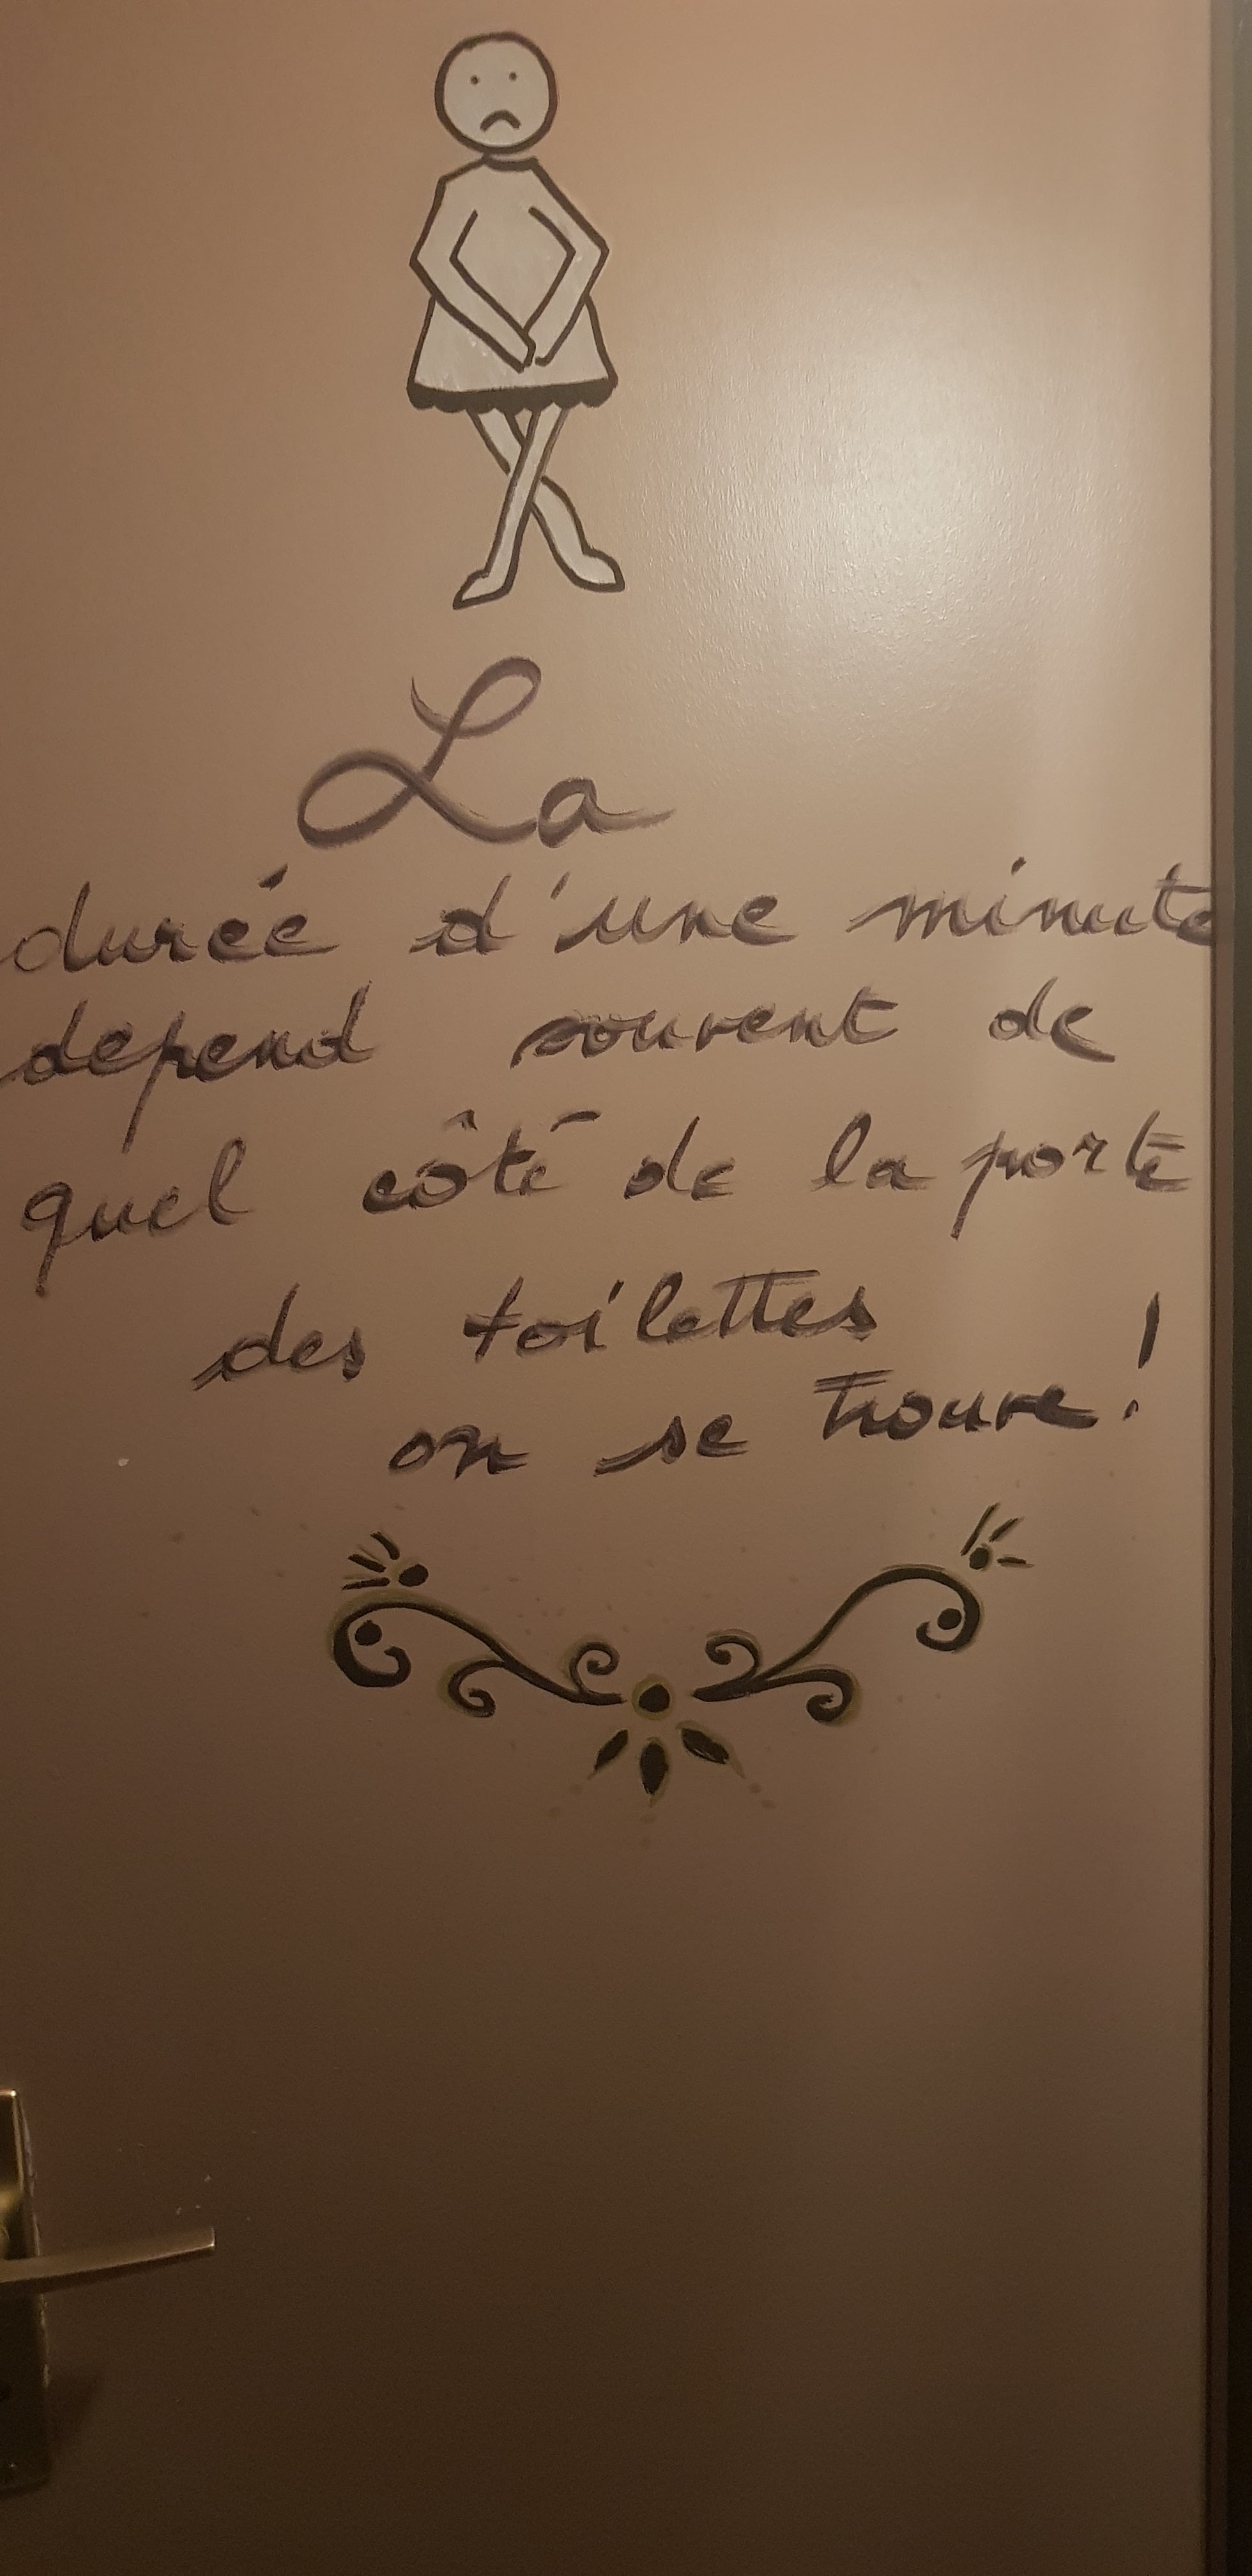 La
durée d'une minute
depend souvent de
quel côté de la porte
des toilettes
on se trouve !